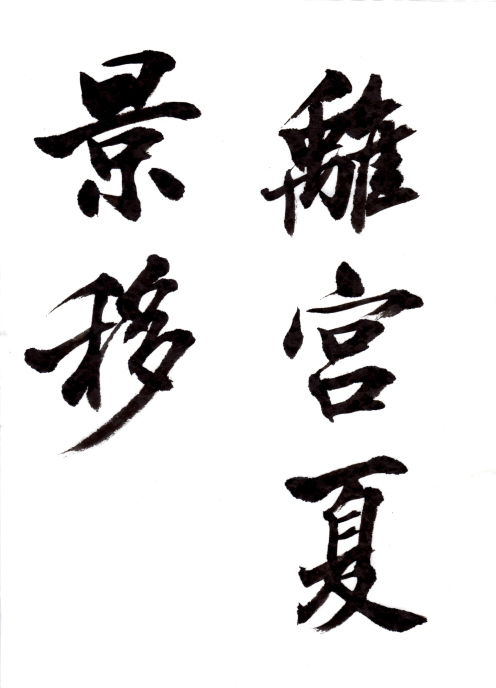 離宮夏
景移